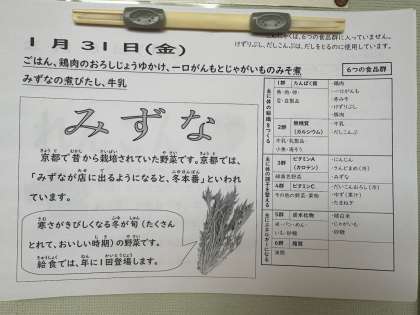 くは、6つの食品群に入っていません。
けずりぶし、だしこんぶは、だしをとるのに使用しています。
1月31日(金)
ごはん、鶏肉のおろしじょうゆかけ、一口がんもとじゃがいものみそ煮
みずなの煮びたし、牛乳
6つの食品群
みずな
京都で昔から栽培されていた野菜です。京都では、
「みずなが店に出るようになると、冬本番」といわれ
ています。
寒さがきびしくなる冬が旬(たくさん
とれて、おいしい時期)の野菜です。
給食では、年に1回登場します。
1群 たんぱく質
魚・肉・卵・
豆・豆製品
・鶏肉
・一口がんも
・赤みそ
・けずりぶし
2群 無機質
(カルシウム)
牛乳・乳製品
小魚・海そう
・牛乳
・だしこんぶ
3群 ビタミンA
(カロテン)
緑黄色野菜
・にんじん
・さんどまめ(冷)
・みずな
4群 ビタミンC
その他の野菜・果物
・だいこんおろし(冷)
・ゆず(果汁)
・たまねぎ
5群 炭水化物
米・パン・めん・
いも・砂糖
・精白米
・じゃがいも
・砂糖
6群 脂質
油脂